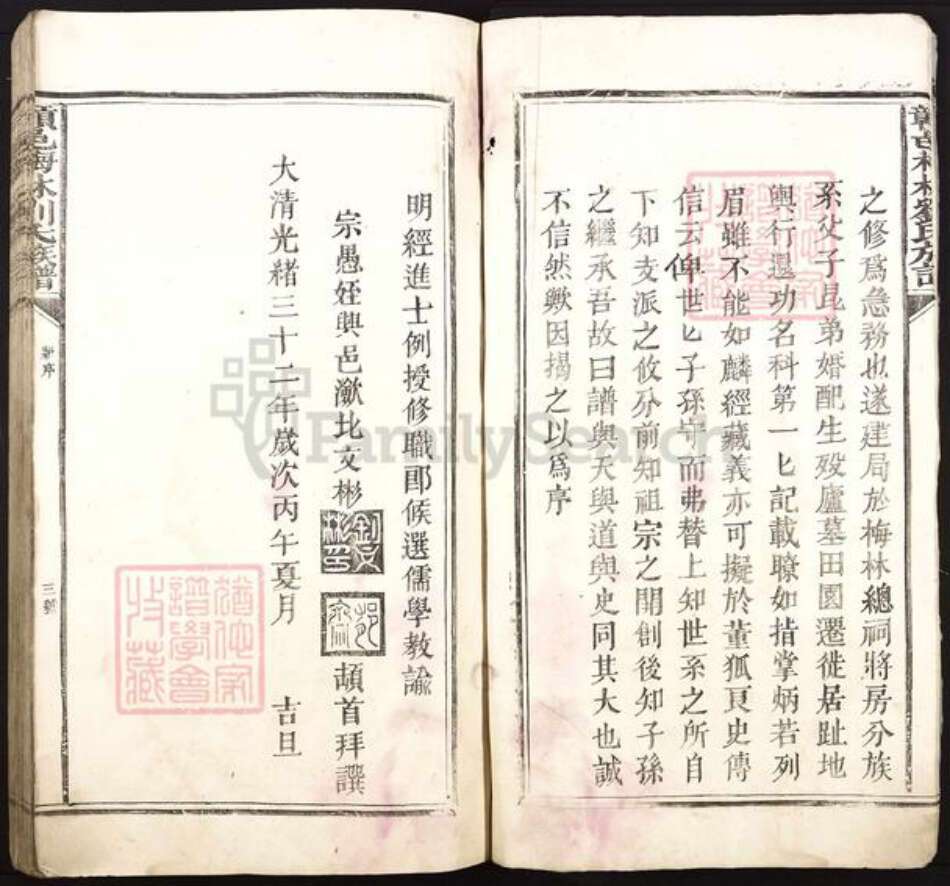 之修爲急務也遂建局於梅林總祠將房分族
系父子昆弟婚配生殁廬墓田園遷徙居趾地
輿行還功名科第一匕記載瞭如指掌炳若列
眉雖不能如麟經藏義亦可擬於董狐良史傳
信云俾世匕子孫守而弗替上知世系之所自
下知支派之攸分前知祖宗之開創後知子孫
之繼承吾故曰譜與天與道與史同其大也誠
不信然歟因揭之以爲序
明經進士例授修職郎候選儒學教諭
宗愚姪興邑瀲北文彬
頡首拜譔
大清光緒三十二年歲次丙午夏月 吉旦
梅林劉氏族譜
新序
三號
猶他家
譜學會
收藏
FamilySearch